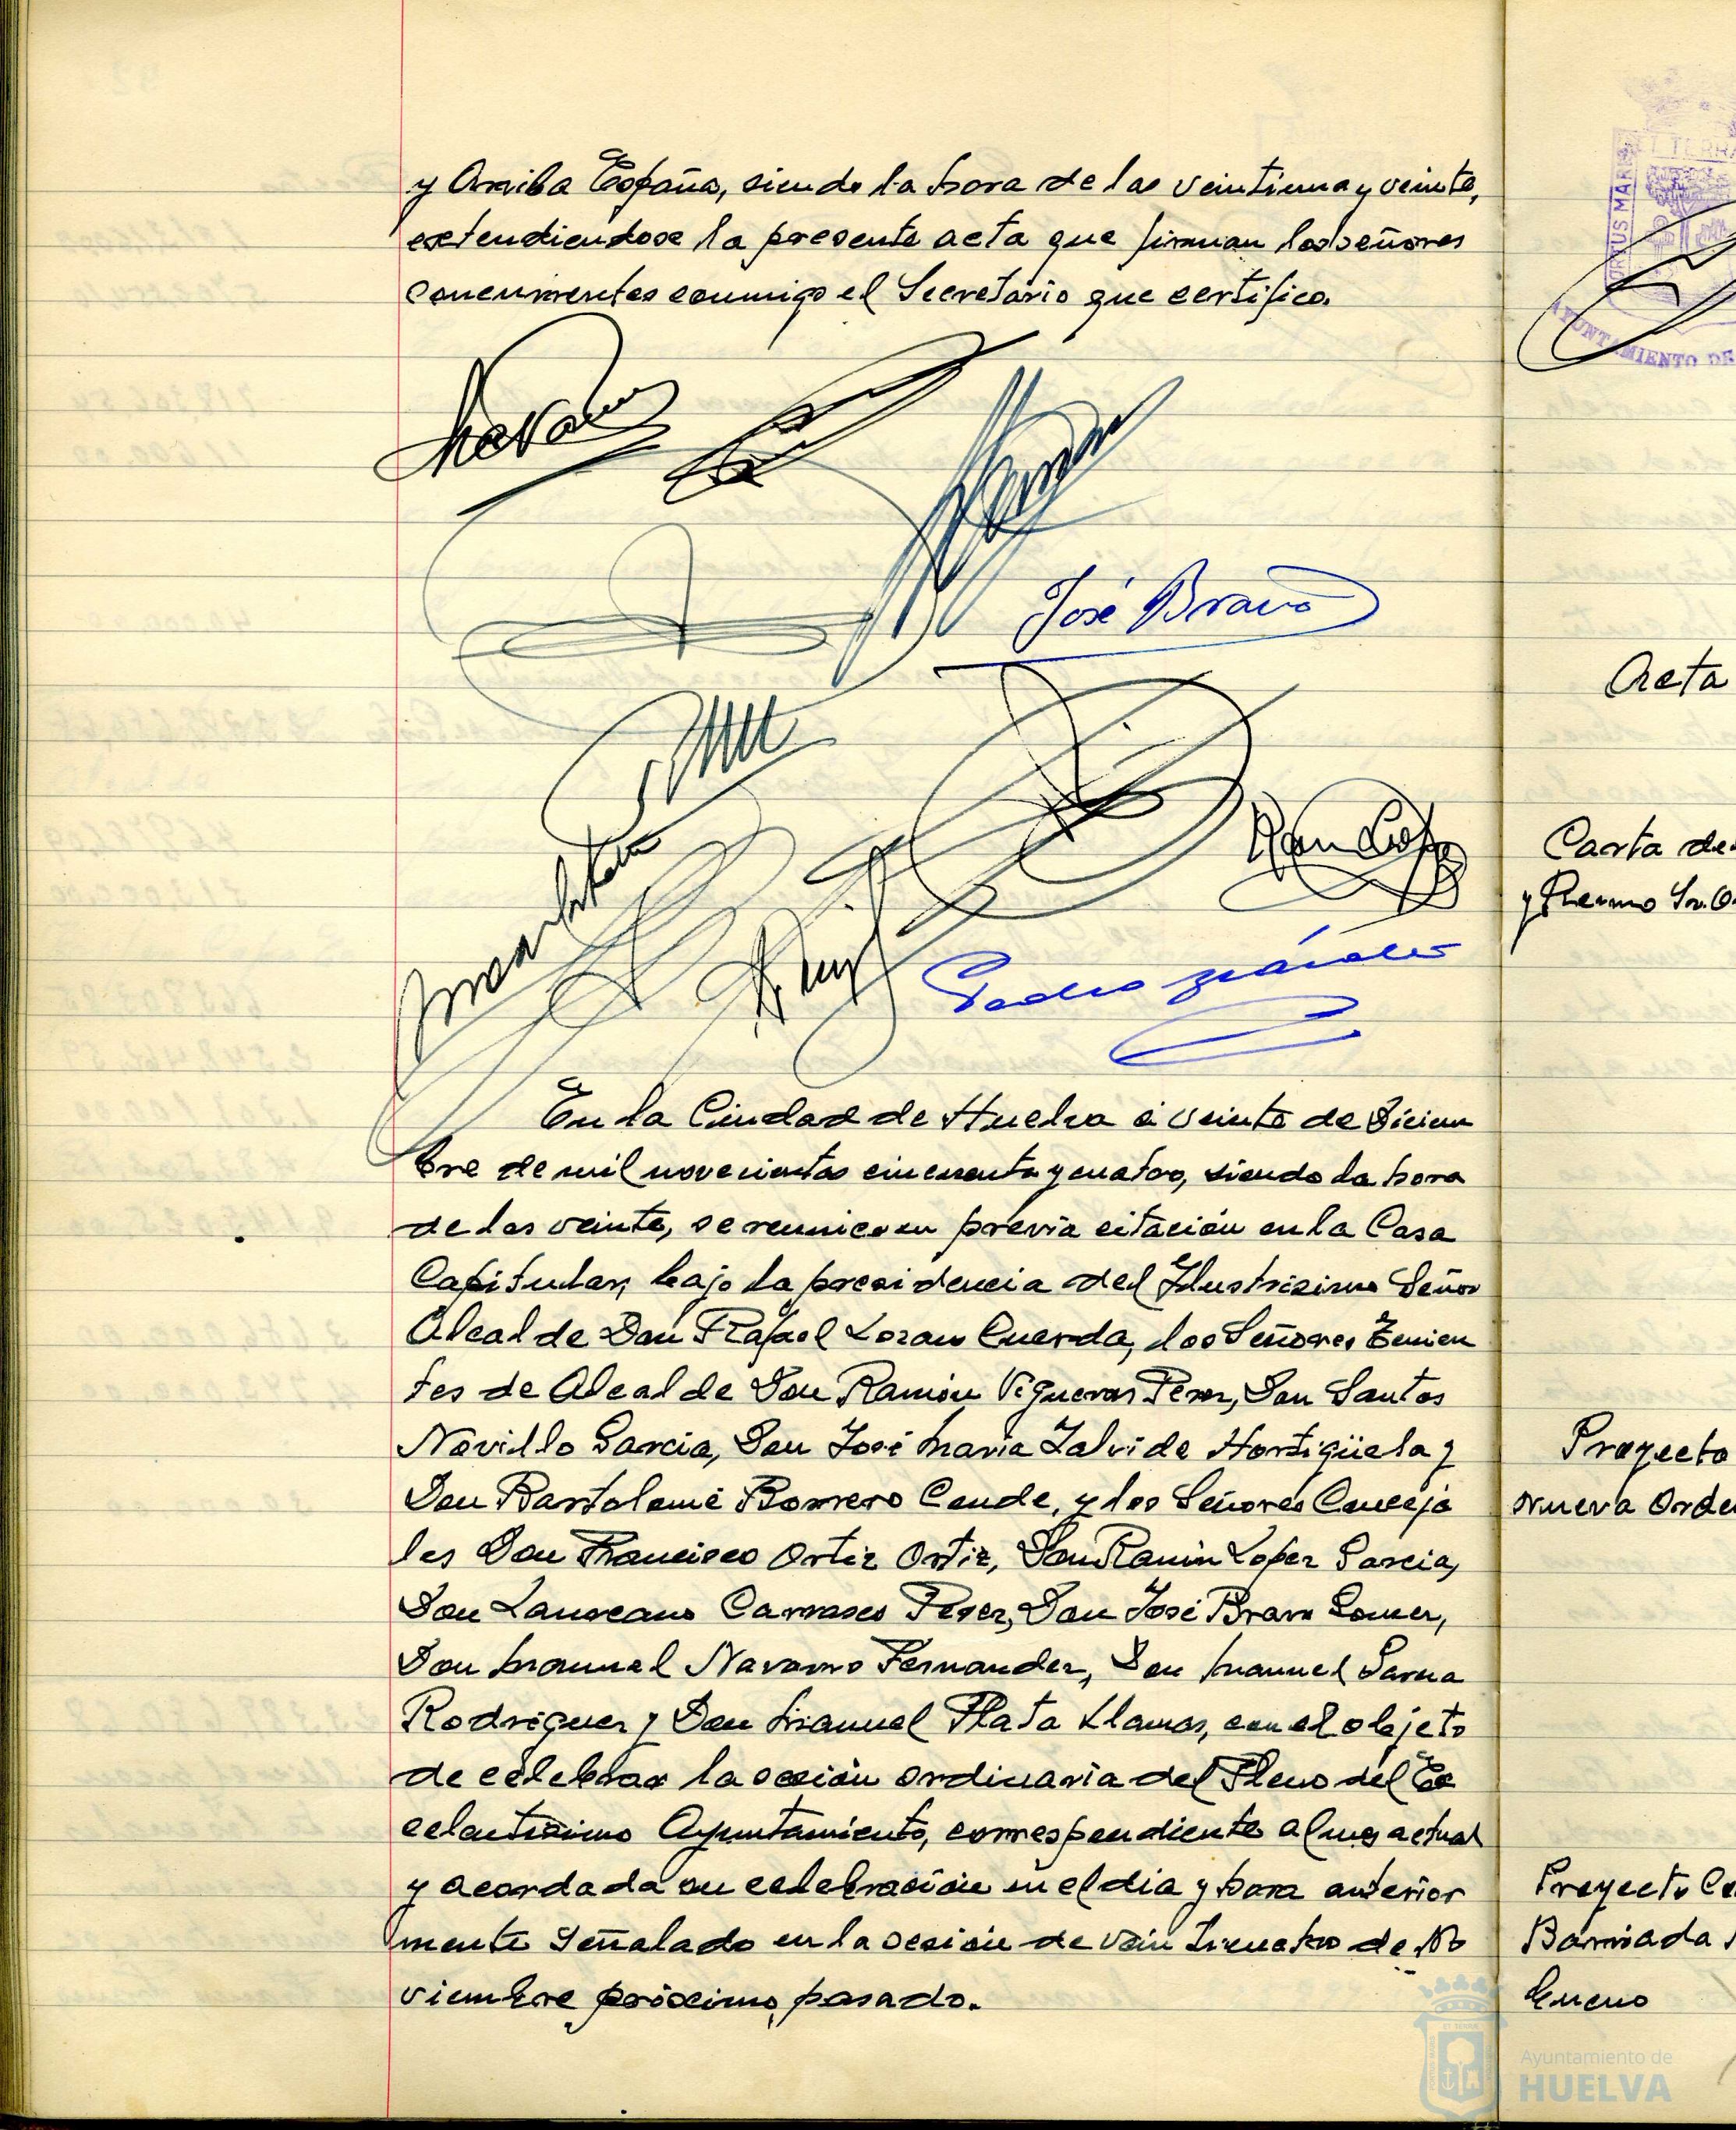 y Arriba España, siendo la hora de las veintiuna y veinte,
extendiendose la presente acta que firman los señores
concurrentes conmigo el Secretario que certifico.
José Bravo
Pedro
En la Ciudad de Huelva a veinte de Diciem
bre de mil novecientos cincuenta y cuatro, siendo la hora
de las veinte, se reunieron previa citación en la Casa
Capitular, bajo la presidencia del Ilustrisimo Señor
Alcalde Don Rafael Lozano Cuerda, los Señores Tenien
tes de Alcalde Don Ramón Vigueras Perez, Don Santos
Novillo Garcia, Don José Maria Zalvide Hortigüela y
Don Bartolomé Borrero Conde, y los Señores Conceja
les Don Francisco Ortiz Ortiz, Don Ramón Lopez Garcia,
Don Laureano Carrasco Perez, Don José Bravo Gomez,
Don Manuel Navarro Fernandez, Don Manuel
Rodriguez y Don Manuel Plata Llamas, con el objeto
de celebrar la sesión ordinaria del Pleno del Ex
celentisimo Ayuntamiento, correspondiente al mes actual
y acordada su celebración en el dia y hora anterior
mente señalado en la sesión de veinticuatro de No
viembre próximo pasado.
ORTUS MARIS ET TERRA
AYUNTAMIENTO DE
Acta
Carta de
y Sr. O
Proyecto
Nueva Orde
Proyecto Co
Barriada
Ayuntamiento de
HUELVA